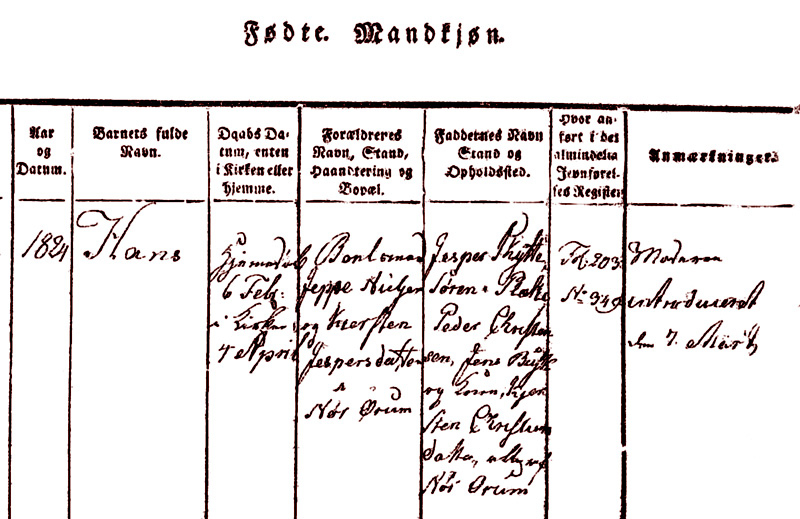 Fødte. Mandkjøn.
Aar
og
Datum.
Barnets fulde
Navn.
Daabs Da-
tum, enten
i Kirken eller
hjemme.
Forældrenes
Navn, Stand,
Haandtering og
Bopæl.
Faddernes Navn
Stand og
Opholdssted.
Hvor an-
ført i det
almindelig
Jevnførel-
ses Register
Anmærkninger.
1824
Hans
Hjemmedøb
6 Febr:
i Kirken
4 April
Bonl
Jeppe Nielsen
og Kiersten
Jespersdatter
Nør Ørum
Jesper Skytte,
Søren
Peder Christen
sen, Jens
og Kone, Kjer
sten Christens
datter, alle af
Nør Ørum
Fol. 203.
No 349
Moderen
introduceret
den 7. Märtz